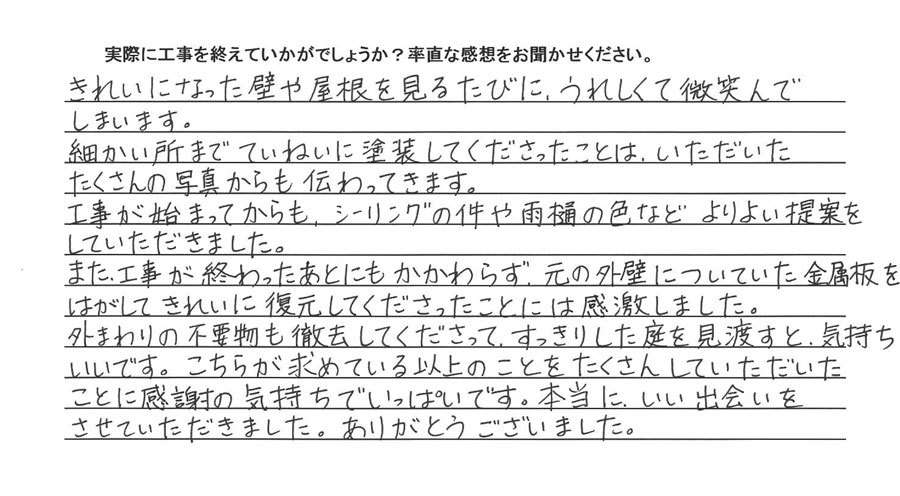 実際に工事を終えていかがでしょうか？率直な感想をお聞かせください。
きれいになった壁や屋根を見るたびに、うれしくて微笑んで
しまいます。
細かい所までていねいに塗装してくださったことは、いただいた
たくさんの写真からも伝わってきます。
工事が始まってからも、シーリングの件や雨樋の色など よりよい提案を
していただきました。
また、工事が終わったあとにもかかわらず、元の外壁についていた金属板を
はがしてきれいに復元してくださったことには感激しました。
外まわりの不要物も撤去してくださって、すっきりした庭を見渡すと、気持ち
いいです。こちらが求めている以上のことをたくさんしていただいた
ことに感謝の気持ちでいっぱいです。本当に、いい出会いを
させていただきました。ありがとうございました。